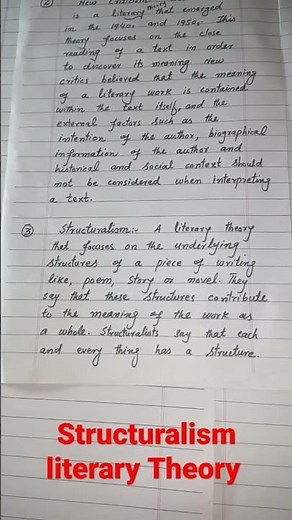 ② New Criticism:
is a literary theory that emerged
in the 1940s and 1950s. This
theory focuses on the close
reading of a text in order
to discover its meaning. New
critics believed that the meaning
of a literary work is contained
within the text itself, and the
external factors such as the
intention of the author, biographical
information of the author and
historical and social context should
not be considered when interpreting
a text.
③ Structuralism:- A literary theory
that focuses on the underlying
structures of a piece of writing
like, poem, story or novel. They
say that these structures contribute
to the meaning of the work as
a whole. Structuralists say that each
and every thing has a structure.
Structuralism
literary Theory